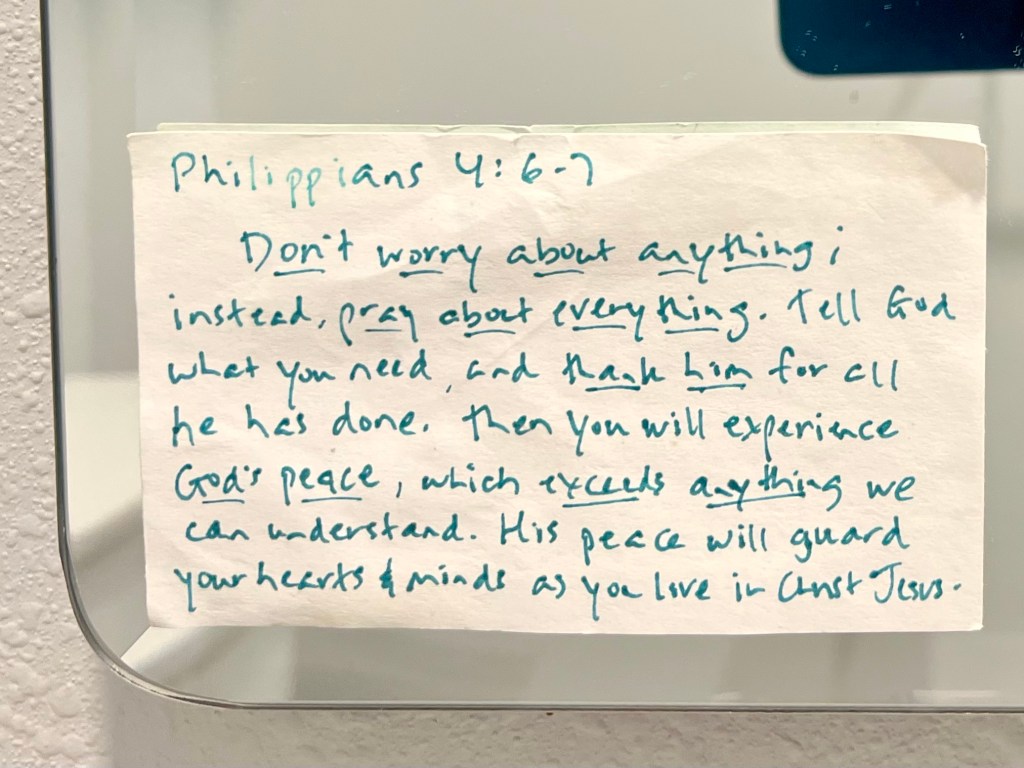 Philippians 4:6-7
Don't worry about anything;
instead, pray about everything. Tell God
what you need, and thank him for all
he has done. Then you will experience
God's peace, which exceeds anything we
can understand. His peace will guard
your hearts & minds as you love in Christ Jesus.